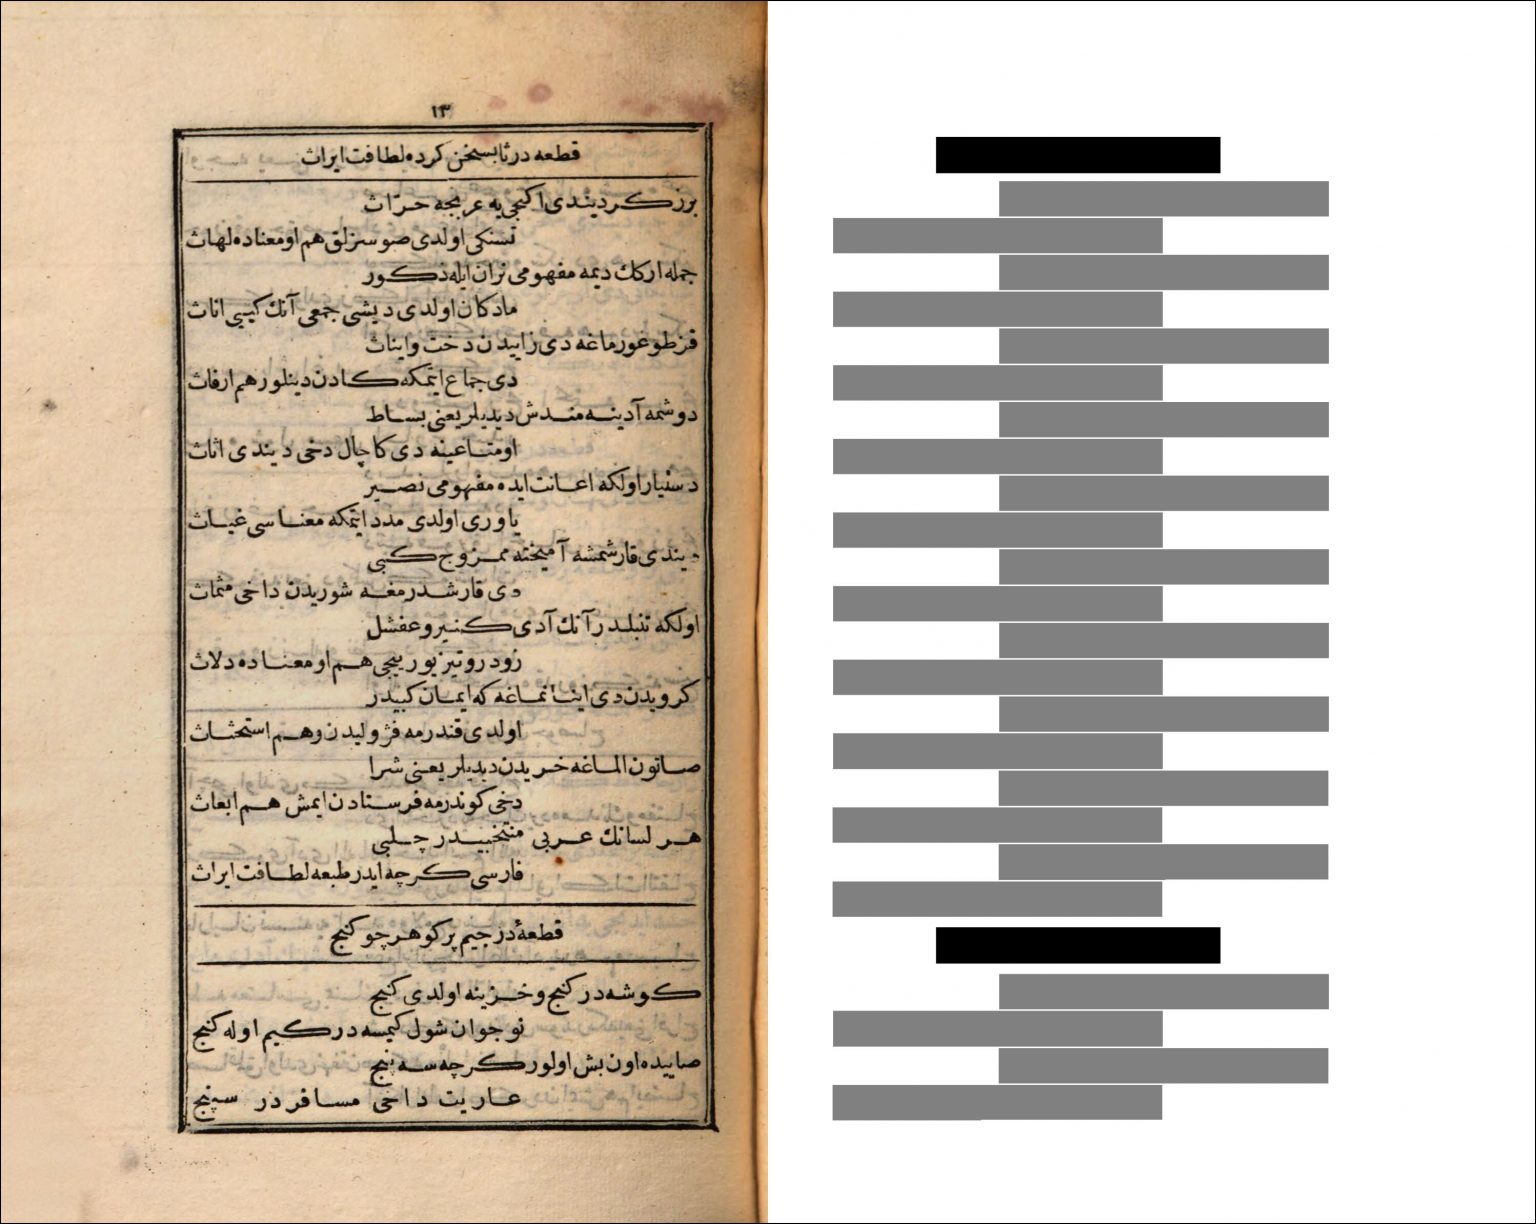 ١٣
قطعه در ثا بسخن كرده لطافت ايراث
برزكر ديندى اكنجى يه عربجه حرّاث
تشنكى اولدى صوسزلق هم او معناده لهاث
جمله اركك ديمه مفهومى نران ايله ذكور
مادكان اولدى ديشى جمعى آنك كيبى اناث
قز طوغورماغه دى زاييدن دخت و ايناث
دى جماع ايتمكه كادن دينلور هم ارفاث
دوشمه آدينه مندش ديديلر يعنى بساط
او متاعينه دى كاچال دخى ديندى اثاث
دستيار اولكه اعانت ايده مفهومى نصير
ياورى اولدى مدد ايتمكه معناسى غياث
ديندى قارشمشه آميخته ممزوج كبى
دى قارشدرمغه شوريدن داخى مثماث
اولكه تنبلدر آنك آدى كنير و عفشل
زودرو تيز يورييجى هم او معناده دلاث
كرويدن دى اينانماغه كه ايمان كبيدر
اولدى قندرمه فژوليدن و هم استحثاث
صاتون الماغه خريدن ديديلر يعنى شرا
دخى كوندرمه فرستادن ايمش هم ابعاث
هر لسانك عربى منتخبيدر چلبى
فارسى كرچه ايدر طبعه لطافت ايراث
قطعهٔ در جيم پر كوهر چو كنج
كوشه در كنج و خزينه اولدى كنج
نوجوان شول كيمسه در كيم اوله كنج
صاييده اون بش اولور كرچه سه پنج
عاريت داخى مسافر در سپنج